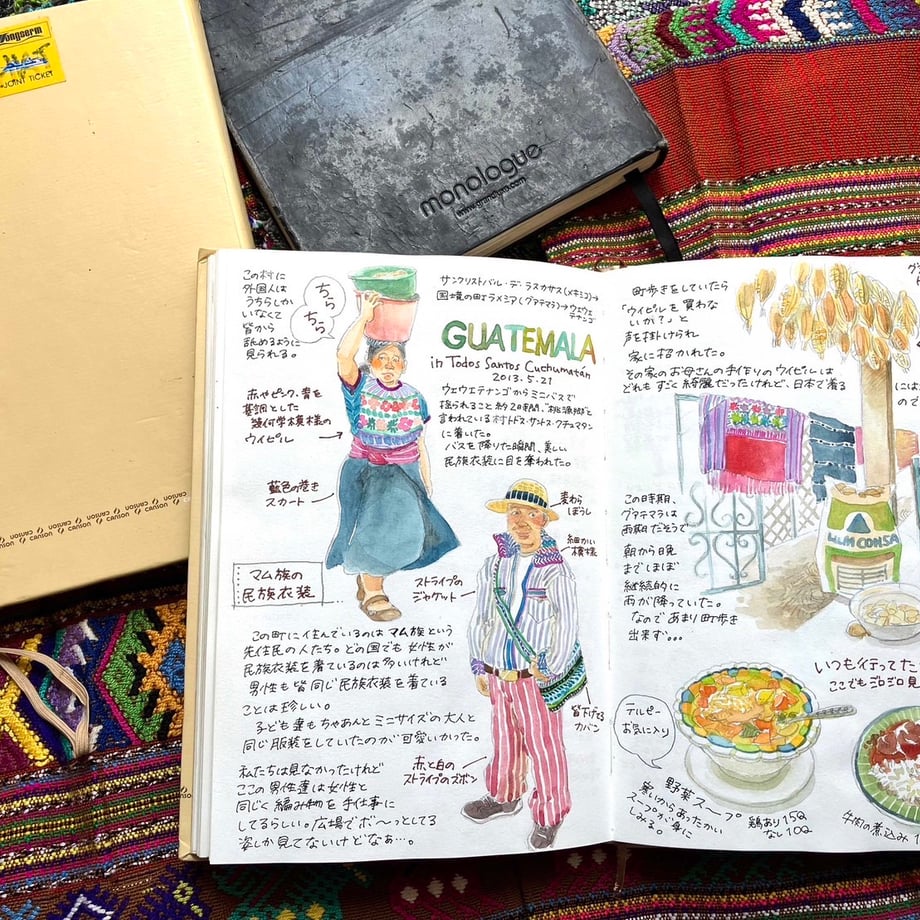 JOINT TICKET
monologue
www.grandluxe.com
canson canson canson canson
canson canson canson canson
この村に
外国人は
うちらしか
いなくて
皆から
舐めるように
見られる。
ちら
ちら
サンクリストバル・デ・ラスカサス(メキシコ)→
国境の町ラメシア(グァテマラ)→ウェウェ
テナンゴ
GUATEMALA
in Todos Santos Cuchumatán
2013.5.21
ウェウェテナンゴからミニバスで
揺られること約2時間、桃源郷と
言われている村トドス・サントス・クチュマタン
に着いた。
バスを降りた瞬間、美しい
民族衣装に目を奪われた。
赤やピンク、青を
基調とした
幾何学模様の
ウイピル
藍色の巻き
スカート
マム族の
民族衣装
麦わら
ぼうし
細かい
模様
ストライプの
ジャケット
肩下げ
カバン
赤と白の
ストライプのズボン
この町に住んでいるのはマム族という
先住民の人たち。どの国でも女性が
民族衣装を着ているのは多いけれど
男性も皆同じ民族衣装を着ている
ことは珍しい。
子ども達もちゃあんとミニサイズの大人と
同じ服装をしていたのが可愛いかった。
私たちは見なかったけれど
ここの男性達は女性と
同じく編み物を手仕事に
してるらしい。広場でボ〜っとしてる
姿しか見てないけどなぁ…。
町歩きをしていたら
「ウイピルを買わな
いか?」と
声を掛けられ
家に招かれた。
その家のお母さんの手作りのウイピルは
どれもすごく綺麗だったけれど、日本で着る
には
ので
この時期、
グァテマラは
雨期だそうで
朝から晩
までほぼ
継続的に
雨が降っていた。
なのであまり町歩き
出来ず…
CONSA
いつも行ってた
ここでもゴロゴロ見
テルピー
お気に入り
野菜スープ
寒いからあったかい
スープが身に
しみる。
鶏あり 15Q
なし 10Q
牛肉の煮込み